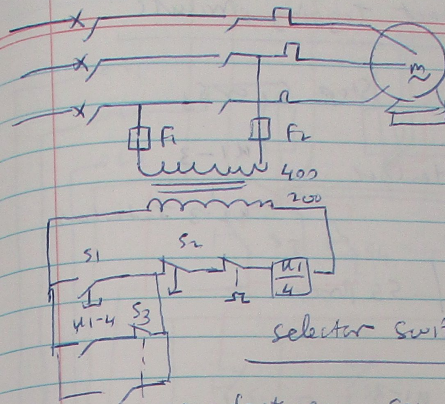 m
F1
F2
400
200
S1
S2
K1
4
K1-4
S3
selector swit